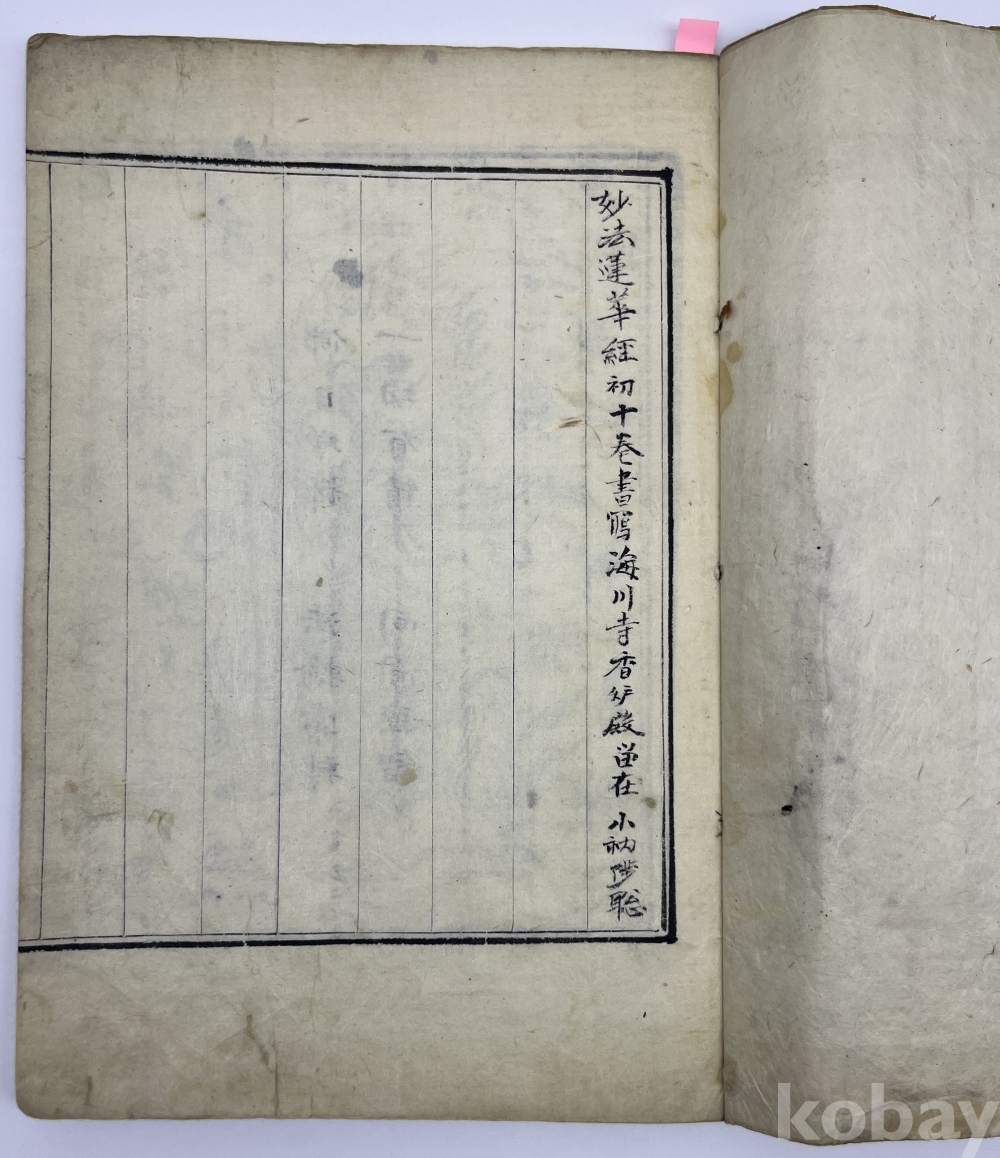 妙法蓮華経初十巻書寫海川寺香炉殿留在 小衲陟聡
kobay